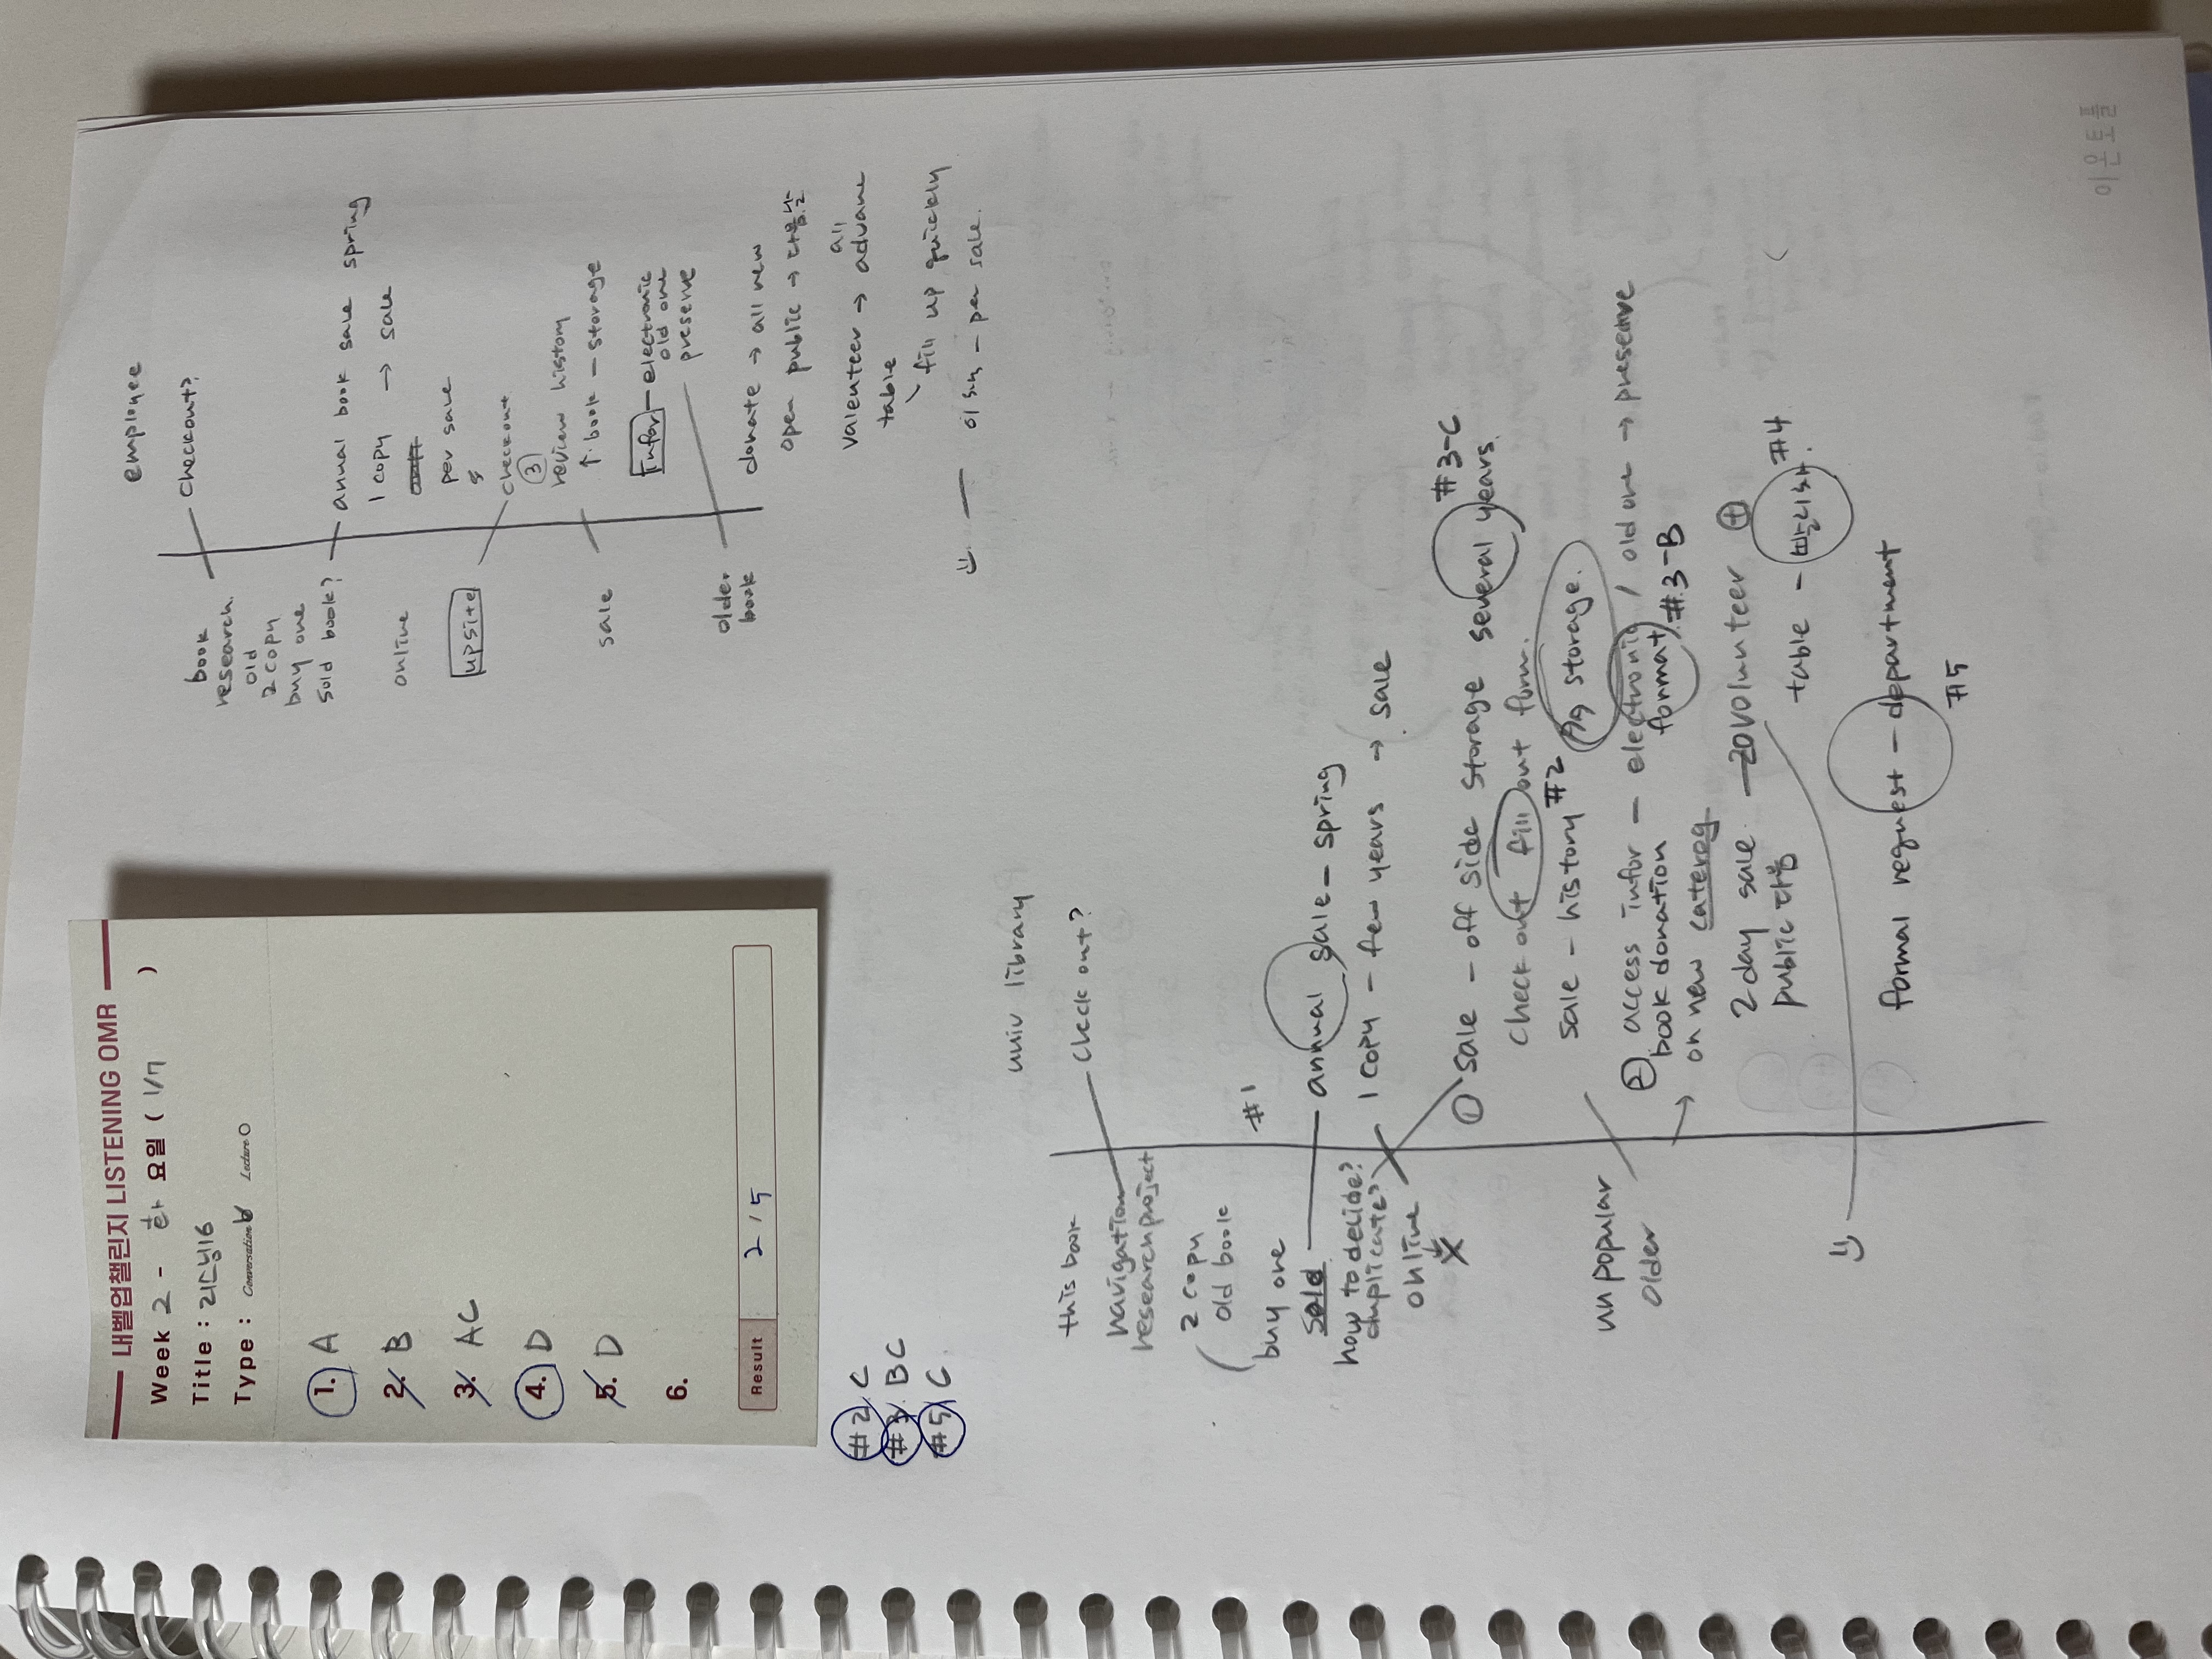 내벨업챌린지 LISTENING OMR
Week 2 - 화 요일 ( 1/7 )
Title : 리스닝16
Type : Conversation Lecture
1. A
2. B
3. AC
4. D
5. D
6.
Result 2/5
#2 C
#3 BC
#5 C.
employee
book
research
old
2 copy
buy one
sold book?
checkout?
annual book sale spring
1 copy → sale
online
per sale
upsite
checkout
③
review history
↑. book - storage
sale
Infor - electronic
old one
preserve
older
book
donate → all new
open public →
all
valenteer → advane
table
fill up quickly
- per sale.
univ library
this book
check out?
navigation
research project
2 copy
old book
buy one
#1
sold
annual sale - spring
how to decide?
duplicate?
1 copy - few years → sale
online
① sale - off side storage several years.
#3-C
check out fill out form.
sale - history storage.
#2
unpopular
older
② access infor - electronic / old one → preserve
format #3-B
book donation
on new cateroy
2 day sale - 20 volunteer ⊕
public 다음
table - 빨리 #4
formal request - department
#5
이윤도를